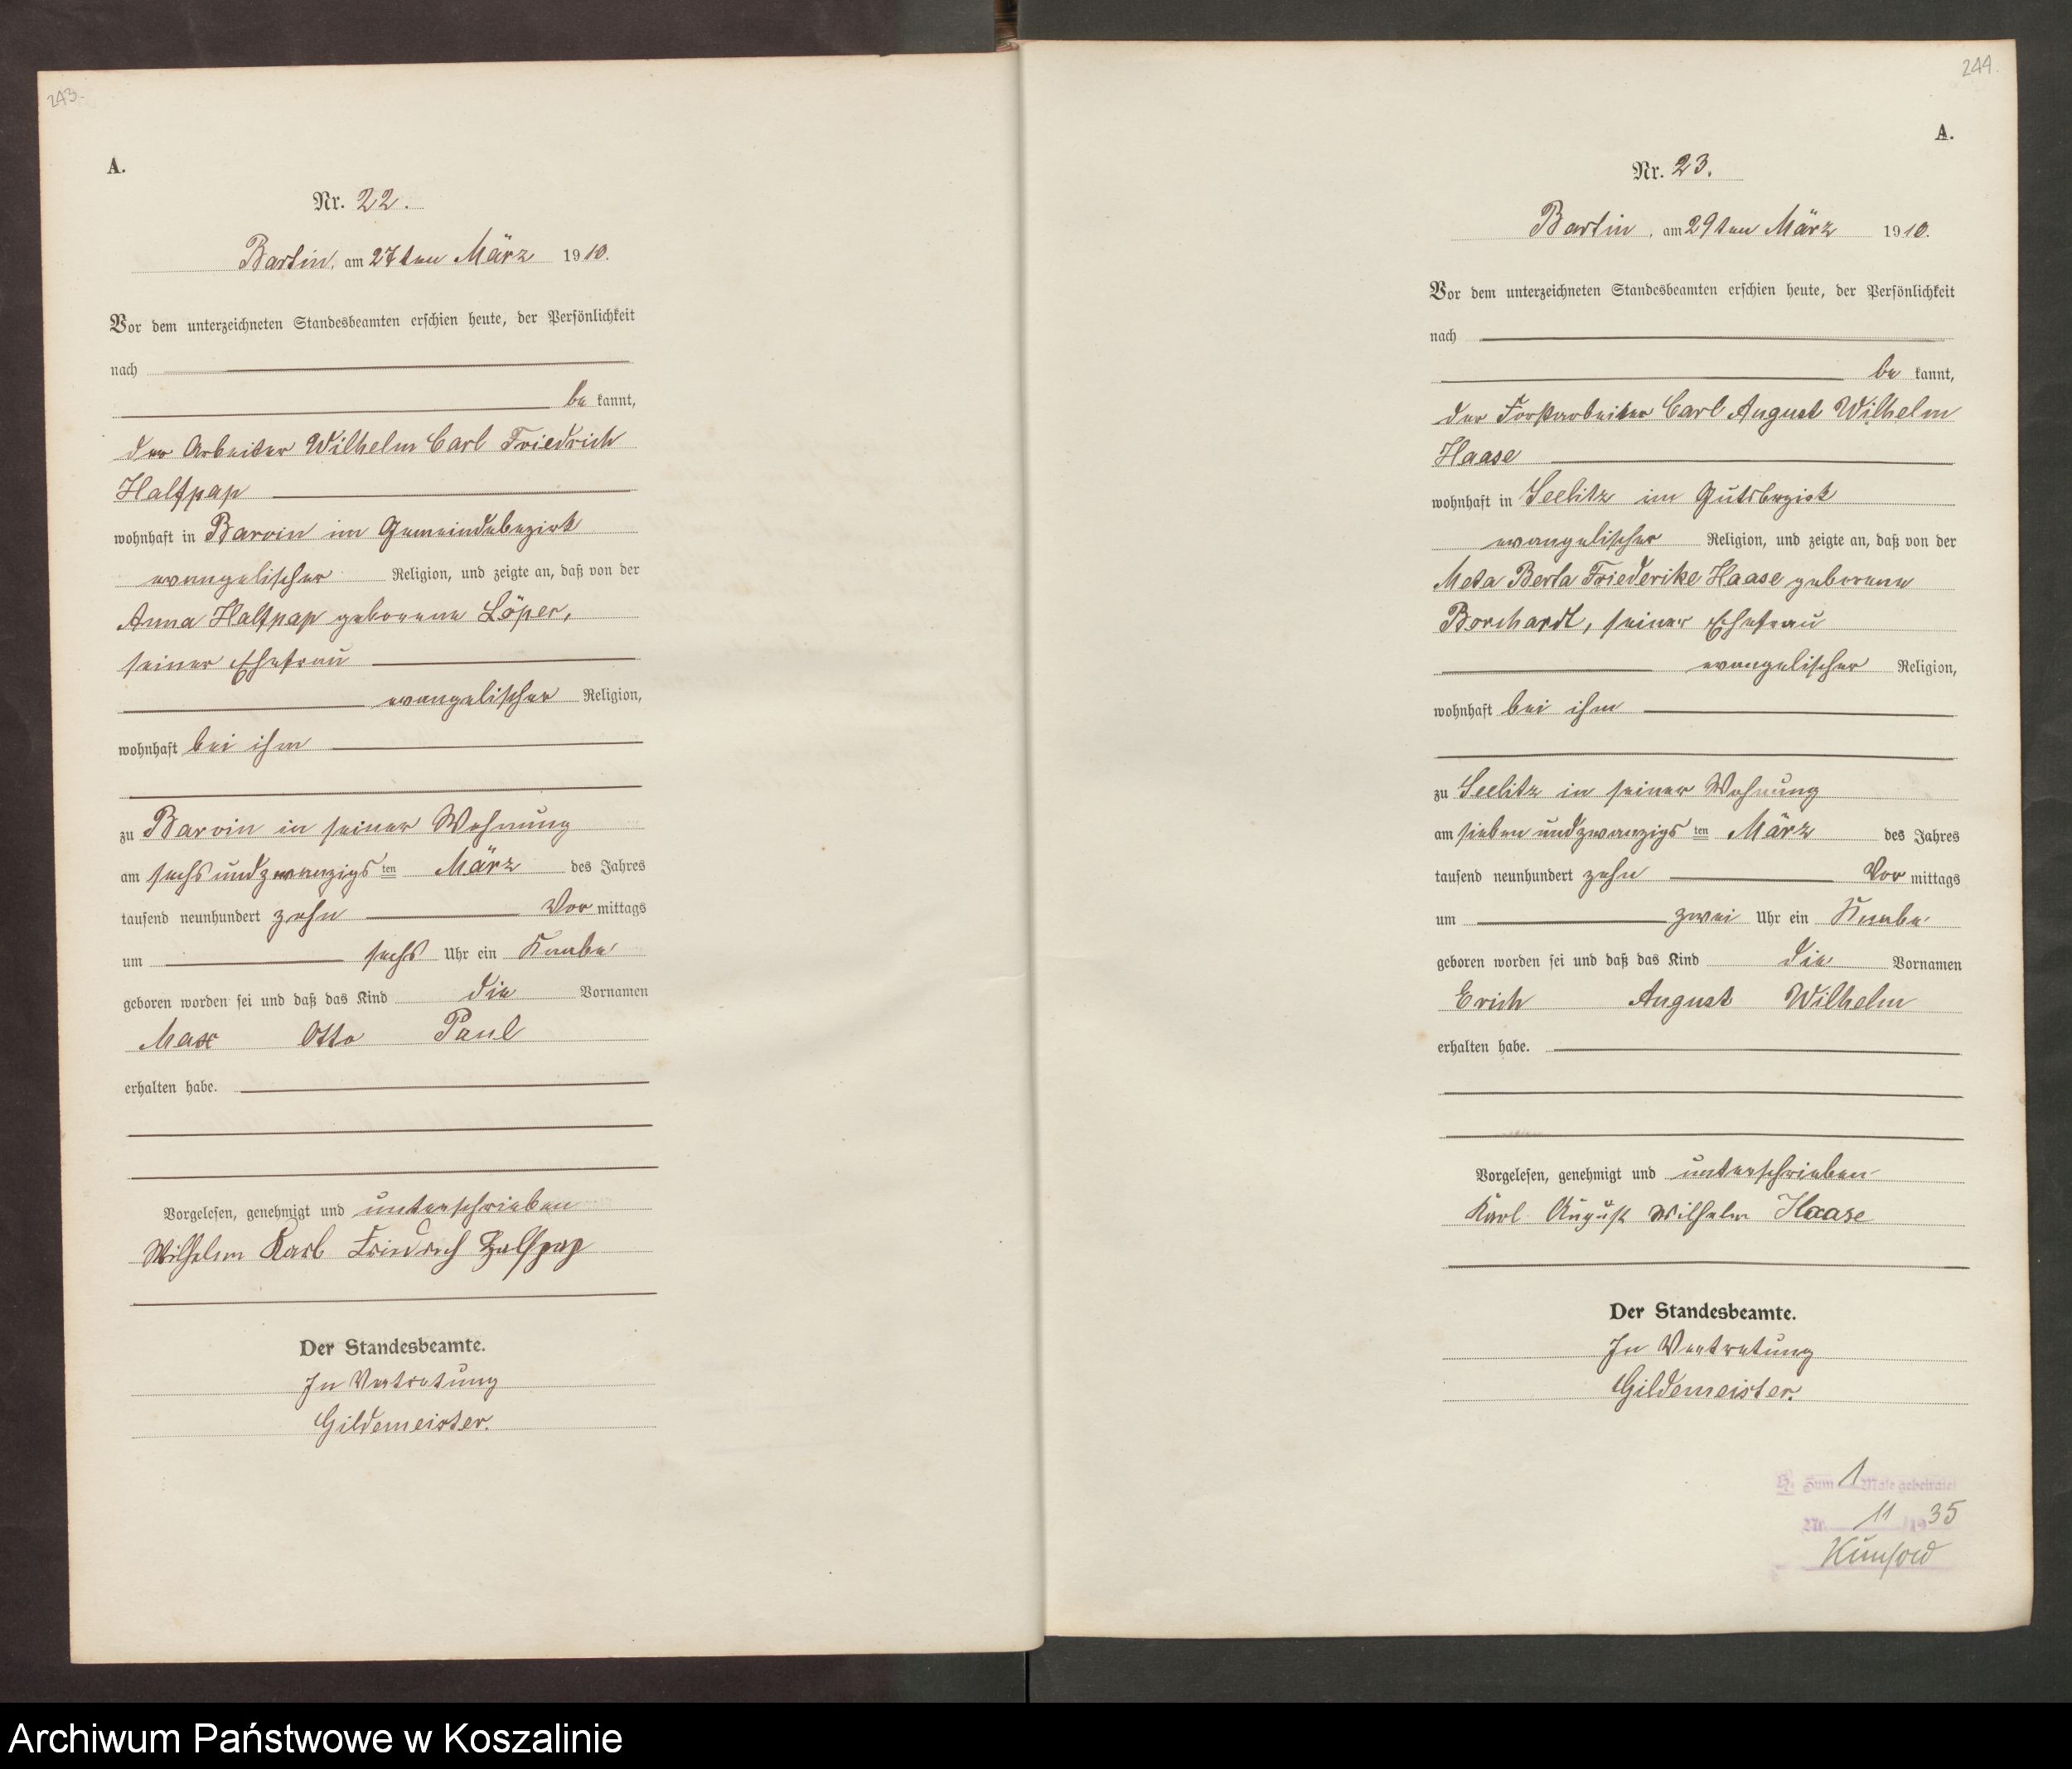 243.
A.
Nr. 22.
Bartin, am 27ten März 1910.
Vor dem unterzeichneten Standesbeamten erschien heute, der Persönlichkeit
nach
be kannt,
der Arbeiter Wilhelm Carl Friedrich
Halfpap
wohnhaft in Barvin im Gemeindebezirk
evangelischer Religion, und zeigte an, daß von der
Anna Halfpap geborene Löper,
seiner Ehefrau
evangelischer Religion,
wohnhaft bei ihm
zu Barvin in seiner Wohnung
am sechsundzwanzigs ten März des Jahres
tausend neunhundert zehn Vor mittags
um sechs Uhr ein Knabe
geboren worden sei und daß das Kind die Vornamen
Max Otto Paul
erhalten habe.
Vorgelesen, genehmigt und unterschrieben
Wilhelm Karl Friedrich Halfpap
Der Standesbeamte.
In Vertretung
Gildemeister.
244.
A.
Nr. 23.
Bartin, am 29ten März 1910.
Vor dem unterzeichneten Standesbeamten erschien heute, der Persönlichkeit
nach
be kannt,
der Forstarbeiter Carl August Wilhelm
Haase
wohnhaft in Seelitz im Gutsbezirk
evangelischer Religion, und zeigte an, daß von der
Meta Berta Friederike Haase geborene
Borchardt, seiner Ehefrau
evangelischer Religion,
wohnhaft bei ihm
zu Seelitz in seiner Wohnung
am siebenundzwanzigs ten März des Jahres
tausend neunhundert zehn Vor mittags
um zwei Uhr ein Knabe
geboren worden sei und daß das Kind die Vornamen
Erich August Wilhelm
erhalten habe.
Vorgelesen, genehmigt und unterschrieben
Karl August Wilhelm Haase
Der Standesbeamte.
In Vertretung
Gildemeister.
Zum 1 Male geheiratet
Nr. 11 /1935
Archiwum Państwowe w Koszalinie